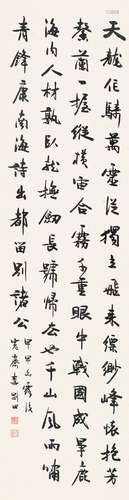 天龍作騎萬靈從獨立飛來縹緲峰懷抱芳
馨蘭一握縱橫宙合霧千重眼中戰國成爭鹿
海內人材孰臥龍撫劍長號歸去也千山風雨嘯
青鋒康南海詩出都留別諸公